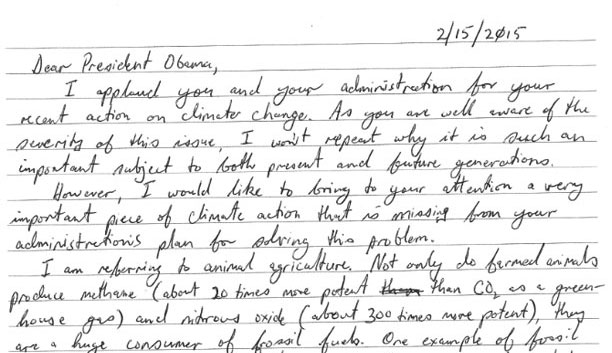 2/15/2015
Dear President Obama,
I applaud you and your administration for your
recent action on climate change. As you are well aware of the
severity of this issue, I won't repeat why it is such an
important subject to both present and future generations.
However, I would like to bring to your attention a very
important piece of climate action that is missing from your
administration's plan for solving this problem.
I am referring to animal agriculture. Not only do farmed animals
produce methane (about 20 times more potent than CO₂ as a green-
house gas) and nitrous oxide (about 300 times more potent), they
are a huge consumer of fossil fuels. One example of fossil